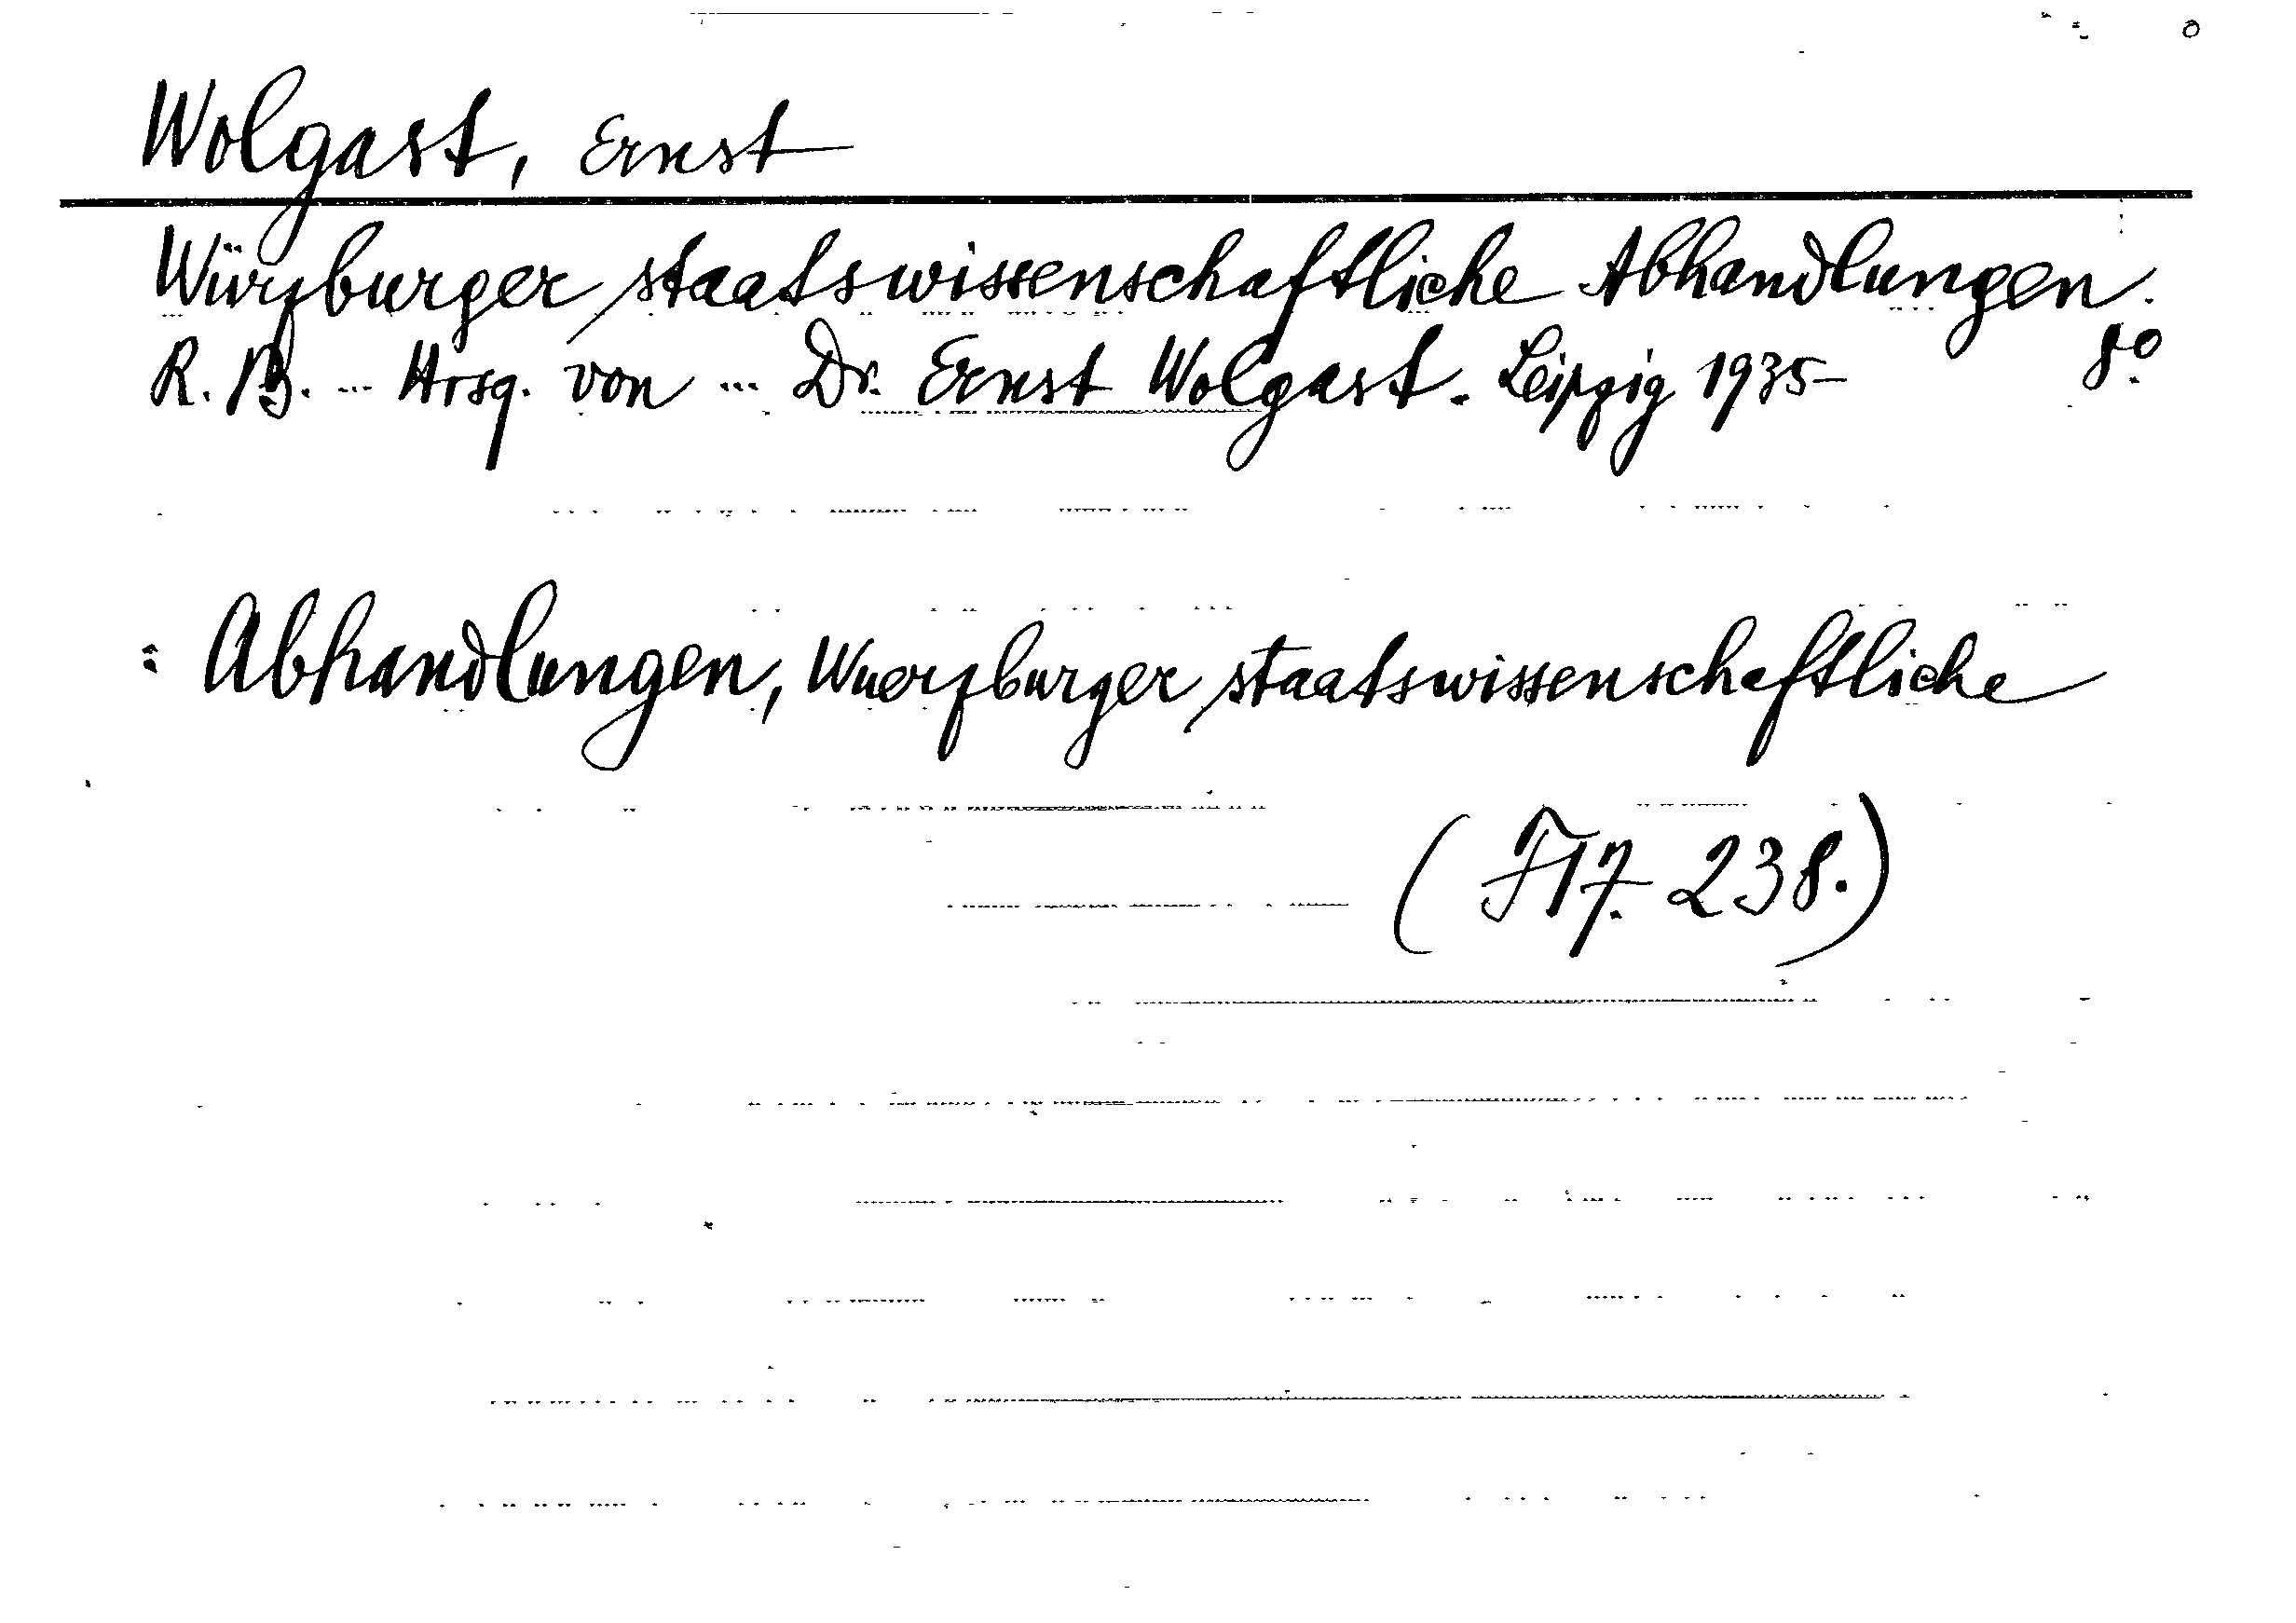 Wolgast, Ernst
Würzburger staatswissenschaftliche Abhandlungen.
R. B. ... Hrsg. von ... Dr. Ernst Wolgast. Leipzig 1935– 8°.
: Abhandlungen, Wuerzburger staatswissenschaftliche
( F17. 238.)